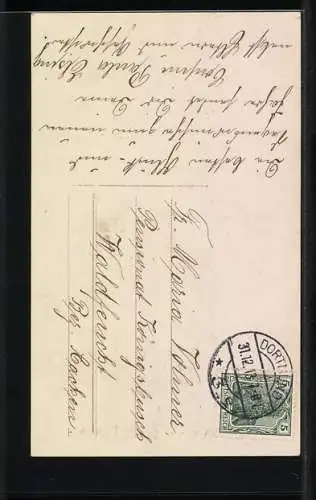 Die besten Glück- und
Segenswünsche zum neuen
Jahre sendet Dir Deine
Cousine Paula
nebst Eltern und Geschwister.
Frl. Maria Vollmer.
Pensionat Königsbusch
Waldfeucht
Bez. Aachen.
DORTMUND
31.12.
5